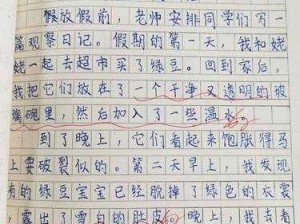 假放假前，老师安排同学们写一
篇观察日记。假期的第一天，我和姥
姥一起去超市买了绿豆。回到家后，
我把它们放在了一个干净又透明的玻
璃碗里，然后加入了一些温水。
到了晚上，它们看起来饱胀得马
上要破裂似的。第二天早上，我发现
有的绿豆宝宝已经脱掉了绿色的衣裳
露出了雪白的肚皮